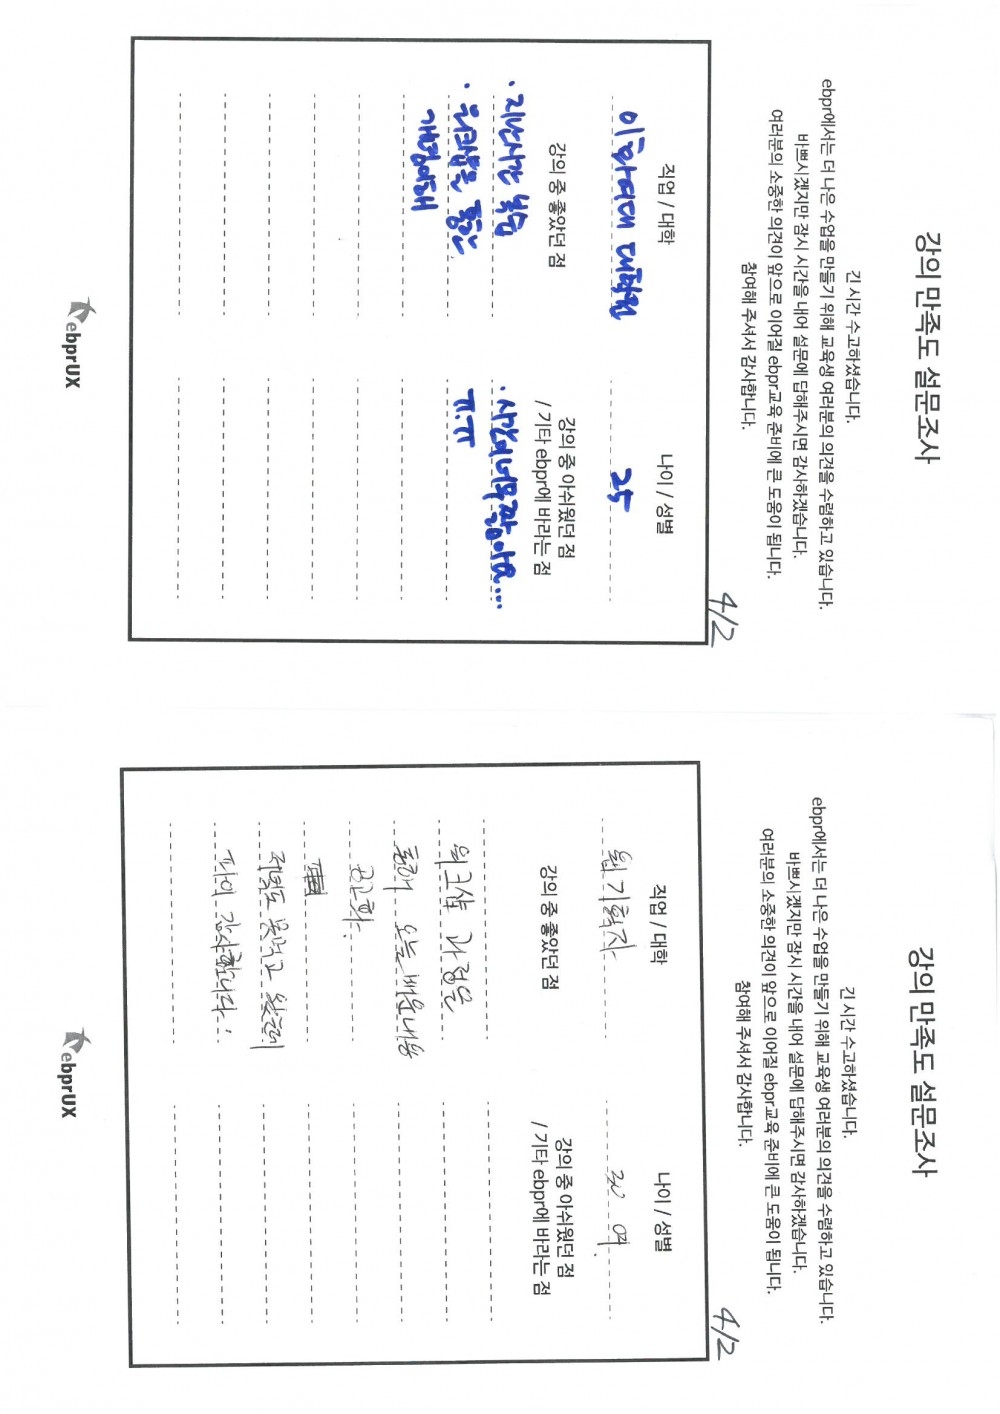 강의 만족도 설문조사
긴 시간 수고하셨습니다.
ebpr에서는 더 나은 수업을 만들기 위해 교육생 여러분의 의견을 수렴하고 있습니다.
바쁘시겠지만 잠시 시간을 내어 설문에 답해주시면 감사하겠습니다.
여러분의 소중한 의견이 앞으로 이어질 ebpr교육 준비에 큰 도움이 됩니다.
참여해 주셔서 감사합니다.
4/2
직업 / 대학
이화여대 대학원
나이 / 성별
25
강의 중 좋았던 점
· 지난시간 복습
· 워크샵을 통한
개념이해
강의 중 아쉬웠던 점
/ 기타 ebpr에 바라는 점
· 시간이 너무 짧아요...
ㅠ.ㅠ
ebprUX
강의 만족도 설문조사
긴 시간 수고하셨습니다.
ebpr에서는 더 나은 수업을 만들기 위해 교육생 여러분의 의견을 수렴하고 있습니다.
바쁘시겠지만 잠시 시간을 내어 설문에 답해주시면 감사하겠습니다.
여러분의 소중한 의견이 앞으로 이어질 ebpr교육 준비에 큰 도움이 됩니다.
참여해 주셔서 감사합니다.
4/2
직업 / 대학
웹기획자
나이 / 성별
30 여.
강의 중 좋았던 점
워크샵 과정을
통해 오늘 배운내용
공고화.
저녁도 못먹고 왔는데
파이 감사합니다.
강의 중 아쉬웠던 점
/ 기타 ebpr에 바라는 점
ebprUX